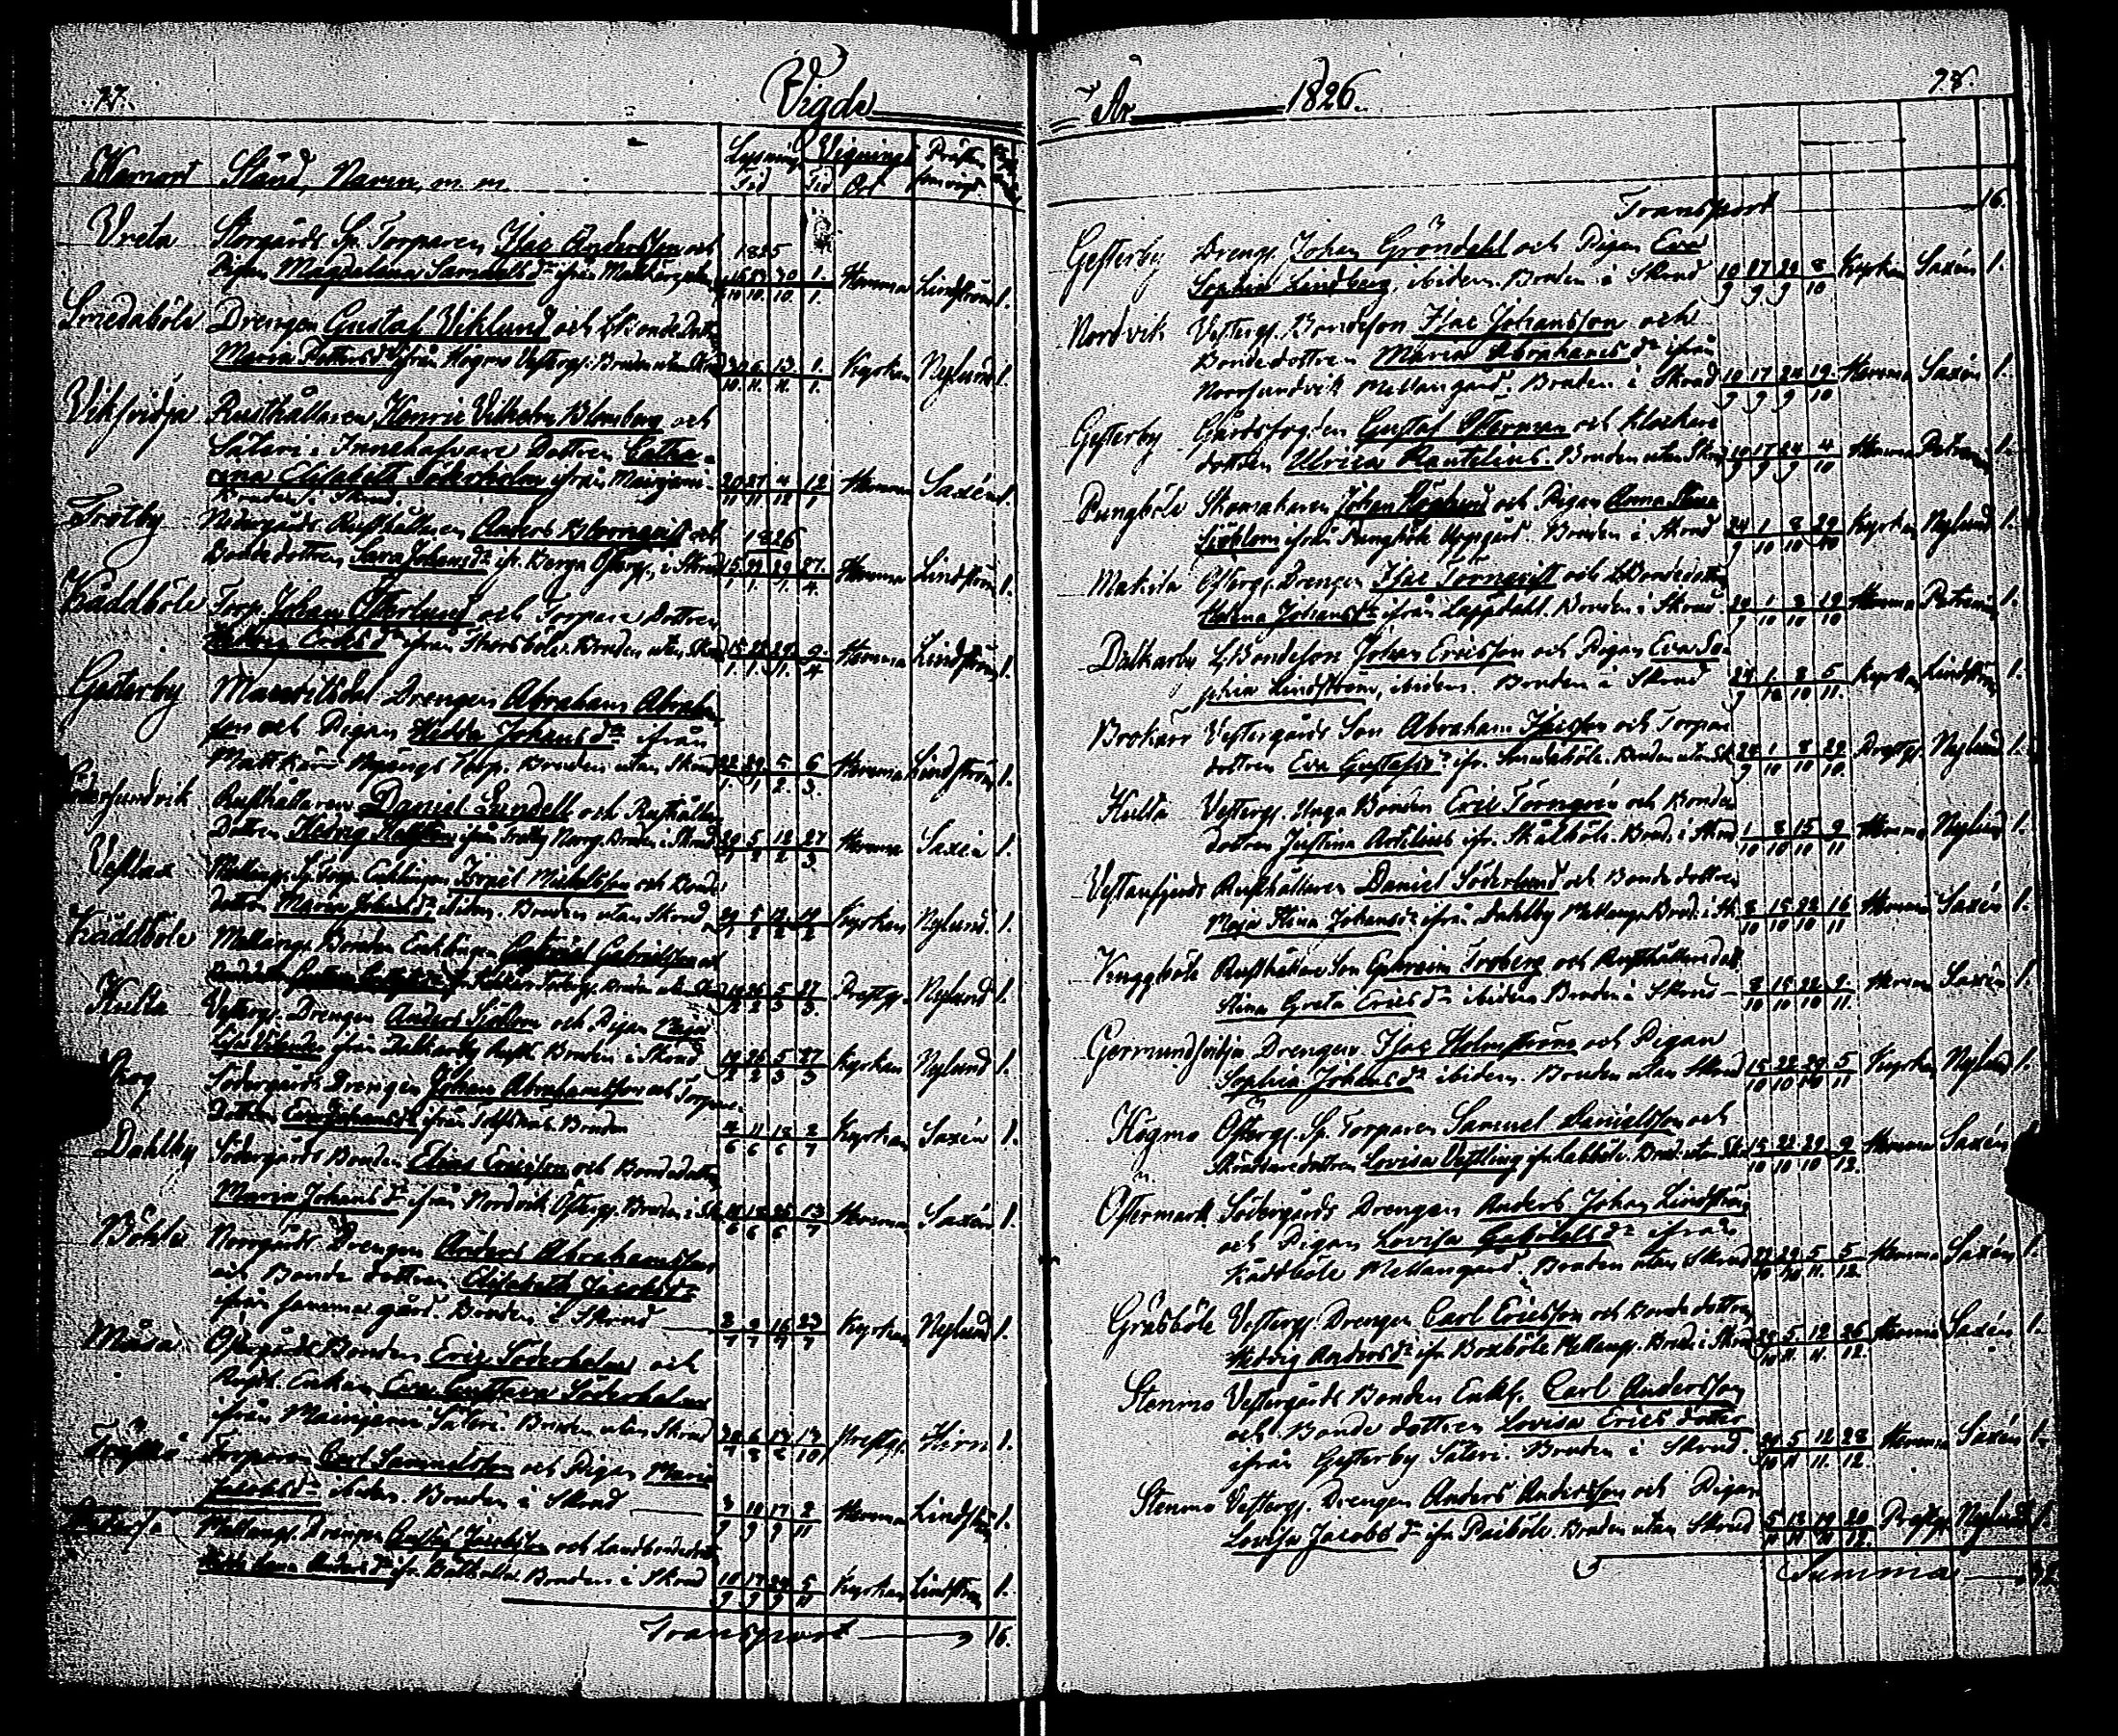 77.
Vigde
Hemort Stånd, Namn, m. m. Lysning Tid Vignings Tid Ort Prästen som vigt
Vreta Storgårds Sp. Torparen Isac Andersson och 1825
Pigan Magdalena Samuels dr ifrån 16 23 30 1. Hemma Lindström 1.
10 10. 10. 1.
Smedaböle Drengen Gustaf Viklund och
Maria ifrån Högmo Vesterg. Bruden utan 6 13 1. Kyrkan Nylund 1.
10. 11. 11. 1.
Viksvidja Rusthållaren Henric Vilhelm Blomberg och
Säteri Innehafvare Dottren Catha-
rina Elisabeth Söderholm ifrån
Bruden i Skrud 20 27 4 12 Hemma Saxén 1.
11 11 12 1
Trotby Nedergårds Rusthållaren Anders Blomqvist och 1826
Bondedottren Sara Johans dr ifr. Berga Österg., i Skrud 15 22 29 27. Hemma Lindström 1.
1. 1. 1. 4.
Käddböle Torp. Johan Österlund och Torpare dottren
ifrån Skorsböle. Bruden utan Skrud 15 22 29 9. Hemma Lindström 1.
1. 1. 1. 4
Gesterby Mauritsdal Drengen Abraham Abrahams-
son och Pigan Hedda Johans dr ifrån
Mattkärr Torp. Bruden utan Skrud 22 29 5 6 Hemma Lindström 1.
1. 1 2. 3.
Rusthållaren Daniel Lundell och Rusthållare
Dottren Hedvig ifrån Trotby Norrg. Bruden i Skrud 29 5 12 27 Hemma Saxén 1.
1 2 2 3
Vestlax Mellang. Sp. Torp. Enklingen Israel Michelsson och Bonde
dottren Maria Johans dr, ibidem. Bruden utan Skrud 29 5 12 19 Kyrkan Nylund 1.
1 2 2 2
Käddböle Mellang. Bonden Enklingen Gabriel Gabrielsson och
19 26 5 27 Prestg. Nylund 1.
2 2 3 3.
Kulla Vesterg. Drengen Anders Sjöblom och Pigan Maja
Lisa ifrån Dalkarby Rusth. Bruden i Skrud 19 26 5 27 Kyrkan Nylund 1.
2 2 3 3
Skog Södergårds Drengen Johan Abrahamsson och Torpare-
dottren Eva Johans dr ifrån Bruden 4 11 18 2 Kyrkan Saxén 1.
6 6 6 7
Dahlby Södergårds Bonden Elias Ericsson och Bondedottren
Maria Johans dr ifrån Nordvik Österg. Bruden i 11 18 25 13 Hemma Saxén 1.
6 6 6 7
Böhle Norrgårds Drengen Anders Abrahamsson
och Bonde dottren Elisabeth Jacobs dr
ifrån samma gård. Bruden i Skrud 2 9 16 23 Kyrkan Nylund 1.
7 7 7 7
Måsa Östergårds Bonden Eric Söderholm och
Enkan Eva Gustava Söderholm
ifrån Säteri. Bruden utan Skrud 30 6 13 13 Prestg. Hirn 1.
7 8 8 10
Träskö Torparen Carl Samuelsson och Pigan Maria
Jacobs dr ibidem. Bruden i Skrud 3 10 17 2 Hemma Lindström 1.
9 9 9 11
Mellang. Drengen Gustaf Jacobsson och Landbondedottren
Anders dr ifr. Bruden i Skrud 10 17 24 5 Kyrkan Lindström 1.
9 9 9 11
Transport 16.
År 1826. 78.
Transport 16.
Gesterby Dreng. Johan Gröndahl och Pigan Eva
Sophia Lindberg, ibidem. Bruden i Skrud 10 17 24 8 Kyrkan Saxén 1.
9 9 9 10
Nordvik Vesterg. Bondeson Isac Johansson och
Bondedottren Maria Abrahams dr ifrån
Norrsundvik Mellangård. Bruden i Skrud 10 17 24 19. Hemma Saxén 1.
9 9 9 10
Gesterby Gårdsfogden Gustaf Österman och Klockare
dottren Ulrica Rautelius. Bruden utan Skrud 10 17 24 4 Hemma 1.
9 9 9 10
Pungböle Skomakaren Johan Höglund och Pigan Anna Stina
Sjöblom ifrån Pungböle Uppgård. Bruden i Skrud 24 1 8 29 Kyrkan Nylund 1.
9 10 10 10
Makila Österg. Drengen Isac Törnqvist och
Helena Johans dr ifrån Lappdahl. Bruden i Skrud 24 1 8 19 Hemma 1.
9 10 10 10
Dalkarby L. Bondeson Johan Ericsson och Pigan Eva So-
phia Lindström, ibidem. Bruden i Skrud 24 1 8 5 Kyrkan Lindström 1.
9 10 10 11.
Brokärr Vestergårds Son Abraham Isacsson och Torpare
dottren Eva Gustafs dr ifr. Smedaböle. Bruden utan Sk. 24 1 8 29 Prestg. Nylund 1.
9 10 10 10.
Hulta Vesterg. Unga Bonden Eric Törnqvis och Bonde
dottren Justina Artelius ifr. Skålböle. Brud. i Skrud 1 8 15 9 Hemma Nylund 1.
10 10 10 11
Vestanfjerds Rusthållaren Daniel Söderlund och Bonde dottren
Maja Stina Johans dr ifrån Dahlby Mellang. Brud. i Sk. 8 15 22 16 Hemma Saxén 1.
10 10 10 11
Rusthållare Son Ephraim Froberg och Rusthållare dott.
Stina Greta Erics dr ibidem Bruden i Skrud 8 15 22 9 Hemma Saxén 1.
10 10 10 11.
Germundsvidja Drengen Isac Holmström och Pigan
Sophia Johans dr ibidem. Bruden utan Skrud 15 22 29 5 Kyrkan Nylund 1.
10 10 10 11
Högmo Österg. Sp. Torparen Samuel Danielsson och
Skräddaredottren Lovisa Vestling ifr. Labböle. Brud. utan Skr. 15 22 29 9 Hemma Saxén
10 10 10 12.
Östermark Södergårds Drengen Anders Johan Lindström
och Pigan Lovisa Gabriels dr ifrån
Käddböle Mellangård. Bruden utan Skrud 22 29 5 5 Hemma Saxén 1.
10 10 11. 12.
Gräsböle Vesterg. Drengen Carl Ericsson och Bonde dottren
Hedvig Anders dr ifr. Boxböle Mellang. Brud. i Skrud 29 5 12 26 Hemma Saxén 1.
10 11. 11. 12.
Stenmo Vestergårds Bonden Enkl. Carl Andersson
och Bonde dottren Lovisa Erics dotter
ifrån Gesterby Säteri. Bruden i Skrud. 29 5 12 28 Hemma Saxén 1.
10 11 11. 12.
Stenmo Vesterg. Drengen Anders Andersson och Pigan
Lovisa Jacobs dr ifr. Paiböle. Bruden utan Skrud 5 12 19 20 Prestg. Nylund 1.
11 11 11 12.
Summa